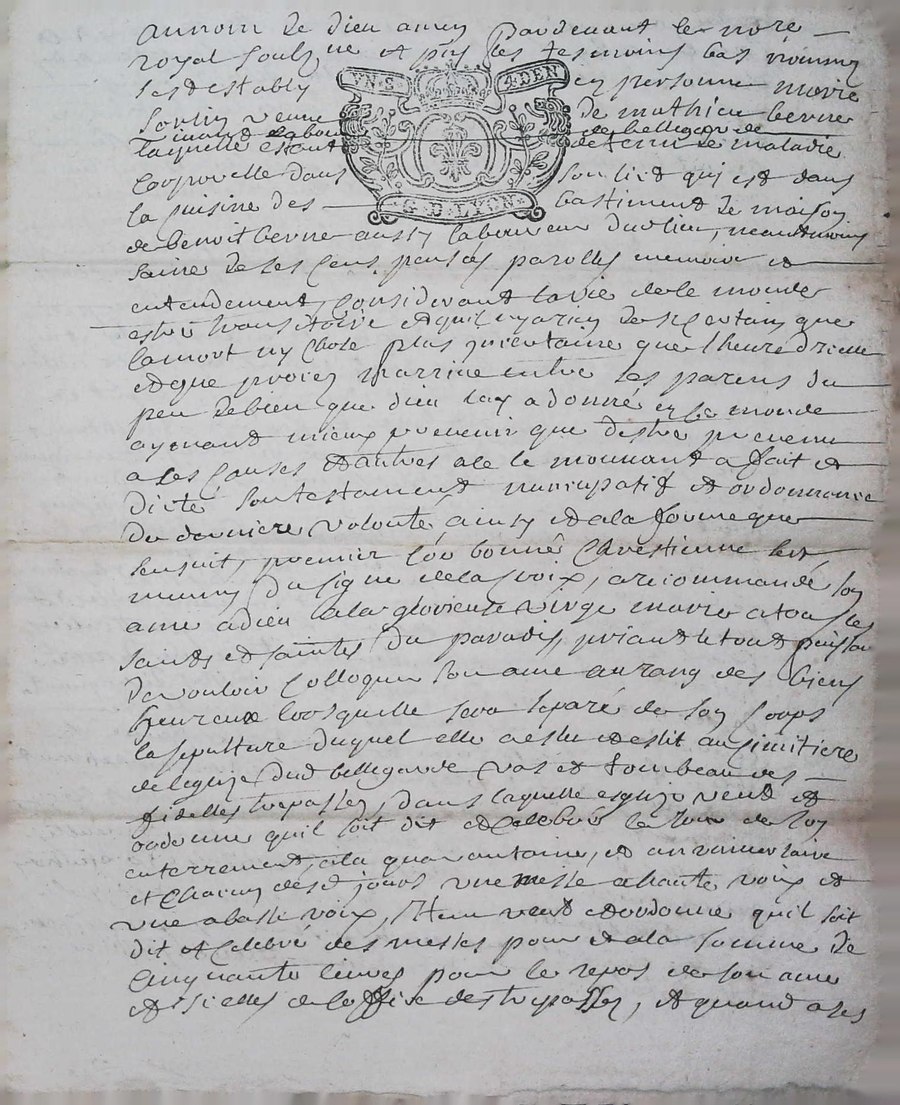 au nom de dieu amen Pardevant le no.re
royal soub.né et pnt les tesmoins bas nommez
VN. S. 4 DEN
sest establÿ en personne marie
veuve de mathieu berne
vivant labou de bellegarde
laquelle estant detenu de maladie
corporelle dans son lict qui est dans
la cuisine des bastiment de maison
G. D. LYON
de benoit berne aussy laboureur dud lieu, neantmoins
saine de ses sens, pensées parolles memoire et
entendement, considerant la vie de ce monde
estre transitoire et quil ny a rien de sy certain que
la mort ny chose plus incertaine que lheure dicelle
et que procez narrive entre ses parens du
peu de bien que dieu luy a donné en ce monde
aymant mieux prevenir que destre prevenue
a ses causes et autres a ce le mouvant a fait et
dicté son testament nuncupatif et ordonnance
de derniere volonté ainsy et a la forme que
sensuit, premier comme bonne Chrestienne sest
munÿ du signe de la croix, a recommandé son
ame a dieu a la glorieuse vierge marie a tous les
saints et saintes du paradis, priant le tout puissan
de vouloir colloquer son ame au rang des biens
heureux lorsquelle sera separé de son corps
la sepulture duquel elle a eslu et eslit au simitiere
de leglize dud bellegarde vas et tombeau des
fidelles trepassez, dans laquelle esglize veut et
ordonne quil soit dit et celebré le jour de son
enterrement, a la quarantaine, et anniversaire
et chacun desd jours une messe a haute voix et
une a basse voix, Item veut et ordonne quil soit
dit et celebré des messes pour et a la somme de
cinquante livres pour le repos de son ame
et icelles de loffice des trepassez, et quand a ses